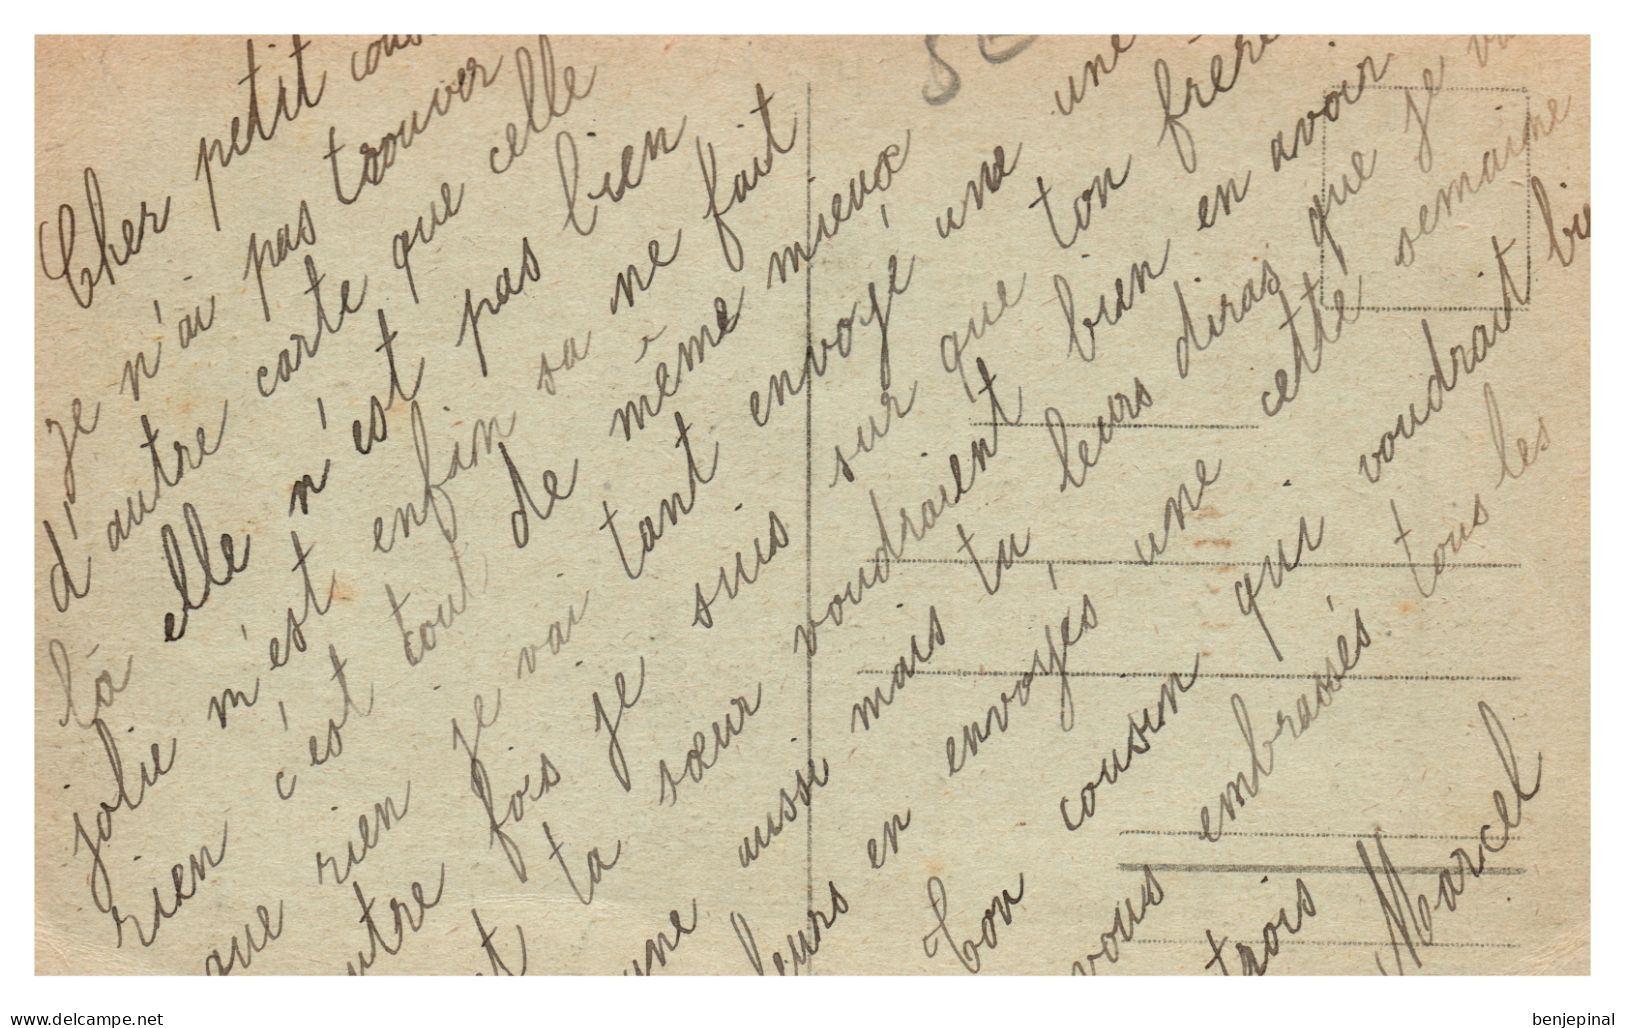 Cher petit cous
je n'ai pas trouver
d'autre carte que celle
là elle n'est pas bien
jolie m'est enfin sa ne fait
rien c'est tout de même mieux
que rien je vai tant envoyé une une
utre fois je suis sur que ton frère
t ta sœur voudraient bien en avoir
une aussi mais tu leurs diras que je va
leurs en envoyés une cette semaine
Ton cousin qui voudrait bie
vous embrassés tous les
trois Marcel
www.delcampe.net
benjepinal